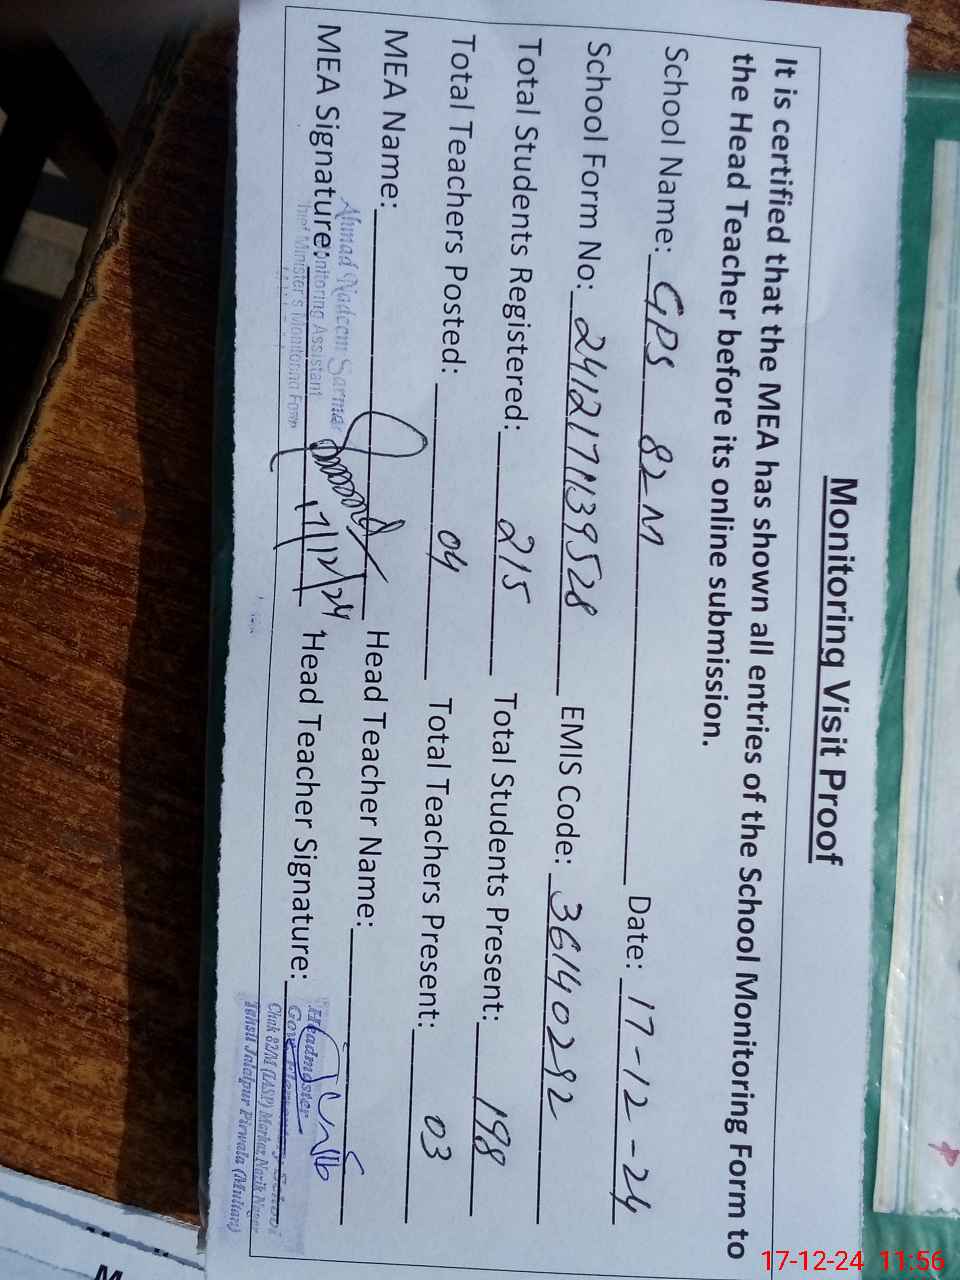 Monitoring Visit Proof
It is certified that the MEA has shown all entries of the School Monitoring Form to
the Head Teacher before its online submission.
School Name: GPS 82-M Date: 17-12-24
School Form No: 2412171139528 EMIS Code: 36140292
Total Students Registered: 215 Total Students Present: 198
Total Teachers Posted: 04 Total Teachers Present: 03
MEA Name: Head Teacher Name:
Ahmad Nadeem Sarmad
MEA Signature: Head Teacher Signature:
Monitoring Assistant
Chief Minister's Monitoring Force
17/12/24
Headmaster
Govt. Elementary School
Chak 82/M (LASP) Markaz
Tehsil Jalalpur Pirwala (Multan)
17-12-24 11:56